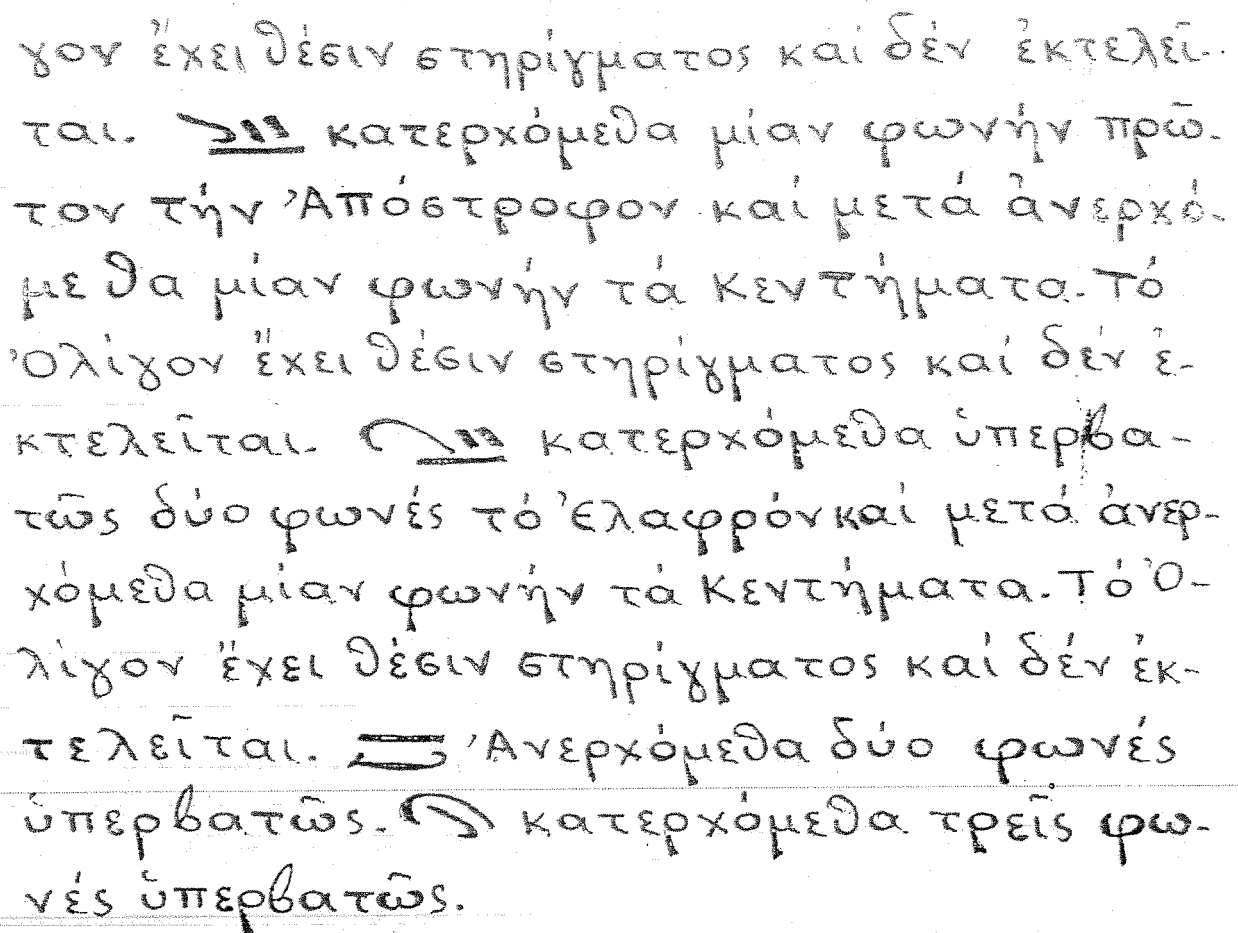 γον ἔχει θέσιν στηρίγματος καί δέν ἐκτελεῖ-
ται. κατερχόμεθα μίαν φωνήν πρῶ-
τον τήν Ἀπόστροφον καί μετά ἀνερχό-
μεθα μίαν φωνήν τά Κεντήματα. Τό
Ὀλίγον ἔχει θέσιν στηρίγματος καί δέν ἐ-
κτελεῖται. κατερχόμεθα ὑπερβα-
τῶς δύο φωνές τό Ἐλαφρόν καί μετά ἀνερ-
χόμεθα μίαν φωνήν τά Κεντήματα. Τό Ὀ-
λίγον ἔχει θέσιν στηρίγματος καί δέν ἐκ-
τελεῖται. Ἀνερχόμεθα δύο φωνές
ὑπερβατῶς. κατερχόμεθα τρεῖς φω-
νές ὑπερβατῶς.